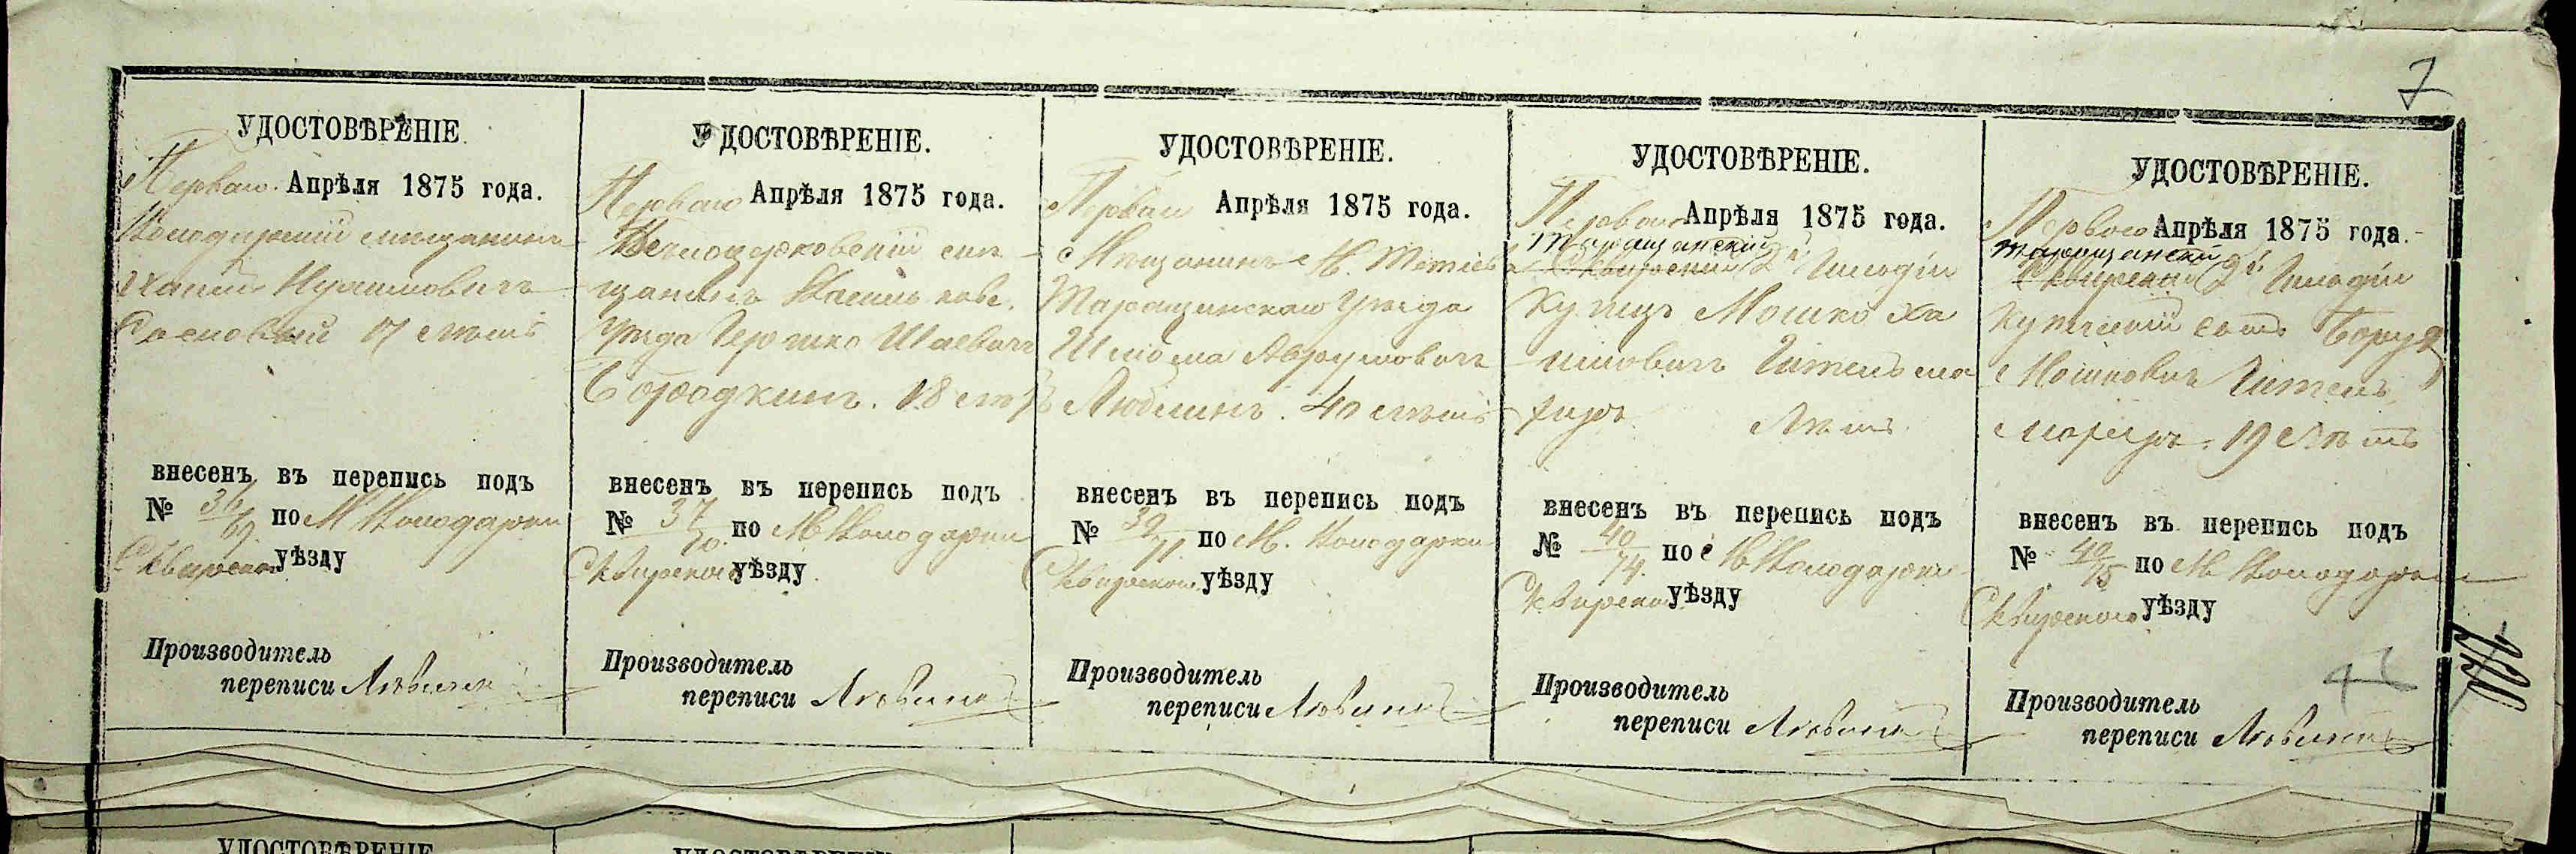 7
УДОСТОВѢРЕНІЕ.
Перваго Апрѣля 1875 года.
Володарскій мѣщанинъ
Сосновый 17 лѣтъ
внесенъ въ перепись подъ
№ 36/69 по М Володарки
Сквирскаго уѣзду
Производитель
переписи
УДОСТОВѢРЕНІЕ.
Перваго Апрѣля 1875 года.
Бѣлоцерковскій мѣ-
щанинъ Васильков.
Уѣзда Гершко Шаевичъ
Бородкинъ. 18 лѣтъ
внесенъ въ перепись подъ
№ 37/70 по М Володарки
Сквирскаго уѣзду
Производитель
переписи
УДОСТОВѢРЕНІЕ.
Перваго Апрѣля 1875 года.
Мѣщанинъ М. Тетіева
Таращанскаго Уѣзда
Шлома Аврумовичъ
Люблинъ. 40 лѣтъ
внесенъ въ перепись подъ
№ 39/71 по М. Володарки
Сквирскаго уѣзду
Производитель
переписи
УДОСТОВѢРЕНІЕ.
Перваго Апрѣля 1875 года.
Таращанскій
Сквирскій 2й Гильдіи
Купецъ Мошко Ха
имовичъ Гительма
херъ Лѣтъ
внесенъ въ перепись подъ
№ 40/74 по М Володарки
Сквирскаго уѣзду
Производитель
переписи
УДОСТОВѢРЕНІЕ.
Перваго Апрѣля 1875 года.
Таращанскій
Сквирскій 2й Гильдіи
Купечскій сынъ Борух
Мошковичъ Гитель
махеръ. 19 Лѣтъ
внесенъ въ перепись подъ
№ 40/75 по М Володарки
Сквирскаго уѣзду
Производитель
переписи
УДОСТОВѢРЕНІЕ